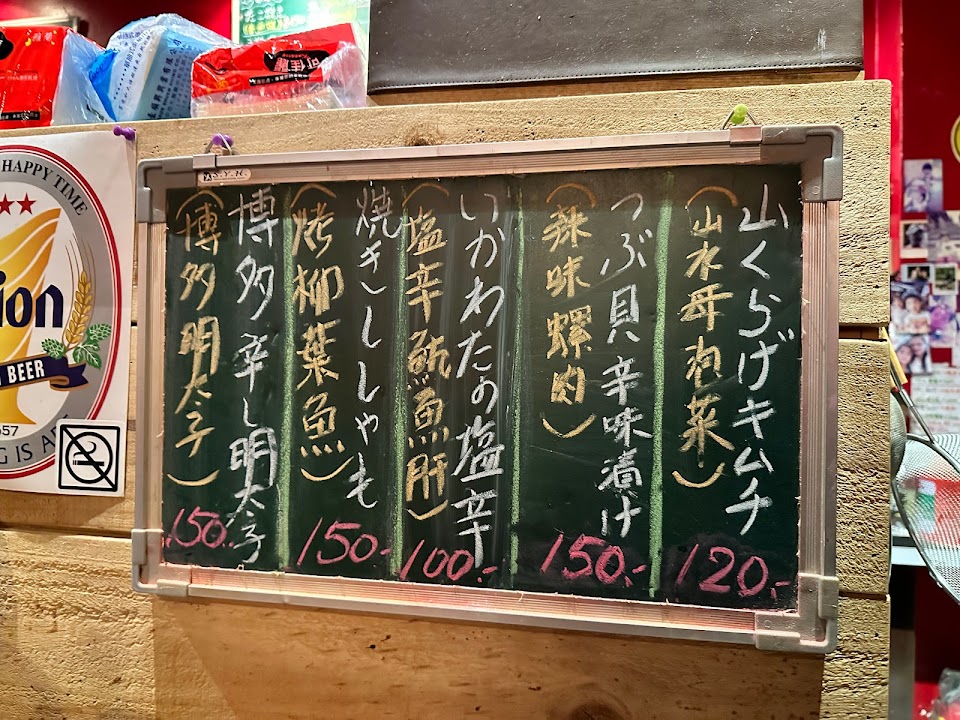 山くらげキムチ
(山水母泡菜)
120.-
つぶ貝辛味漬け
(辣味螺肉)
150.-
いかわたの塩辛
(塩辛魷魚肝)
100.-
焼きししゃも
(烤柳葉魚)
150.-
博多辛し明太子
(博多明太子)
150.-
HAPPY TIME
ion
BEER